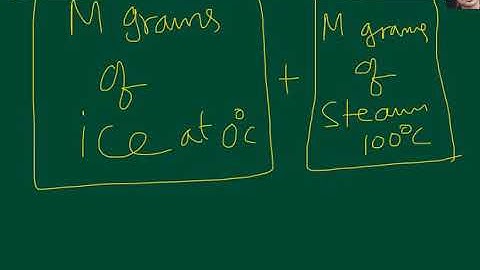 M grams
of
ice at 0°C
+
M grams
of
Steam
100°C